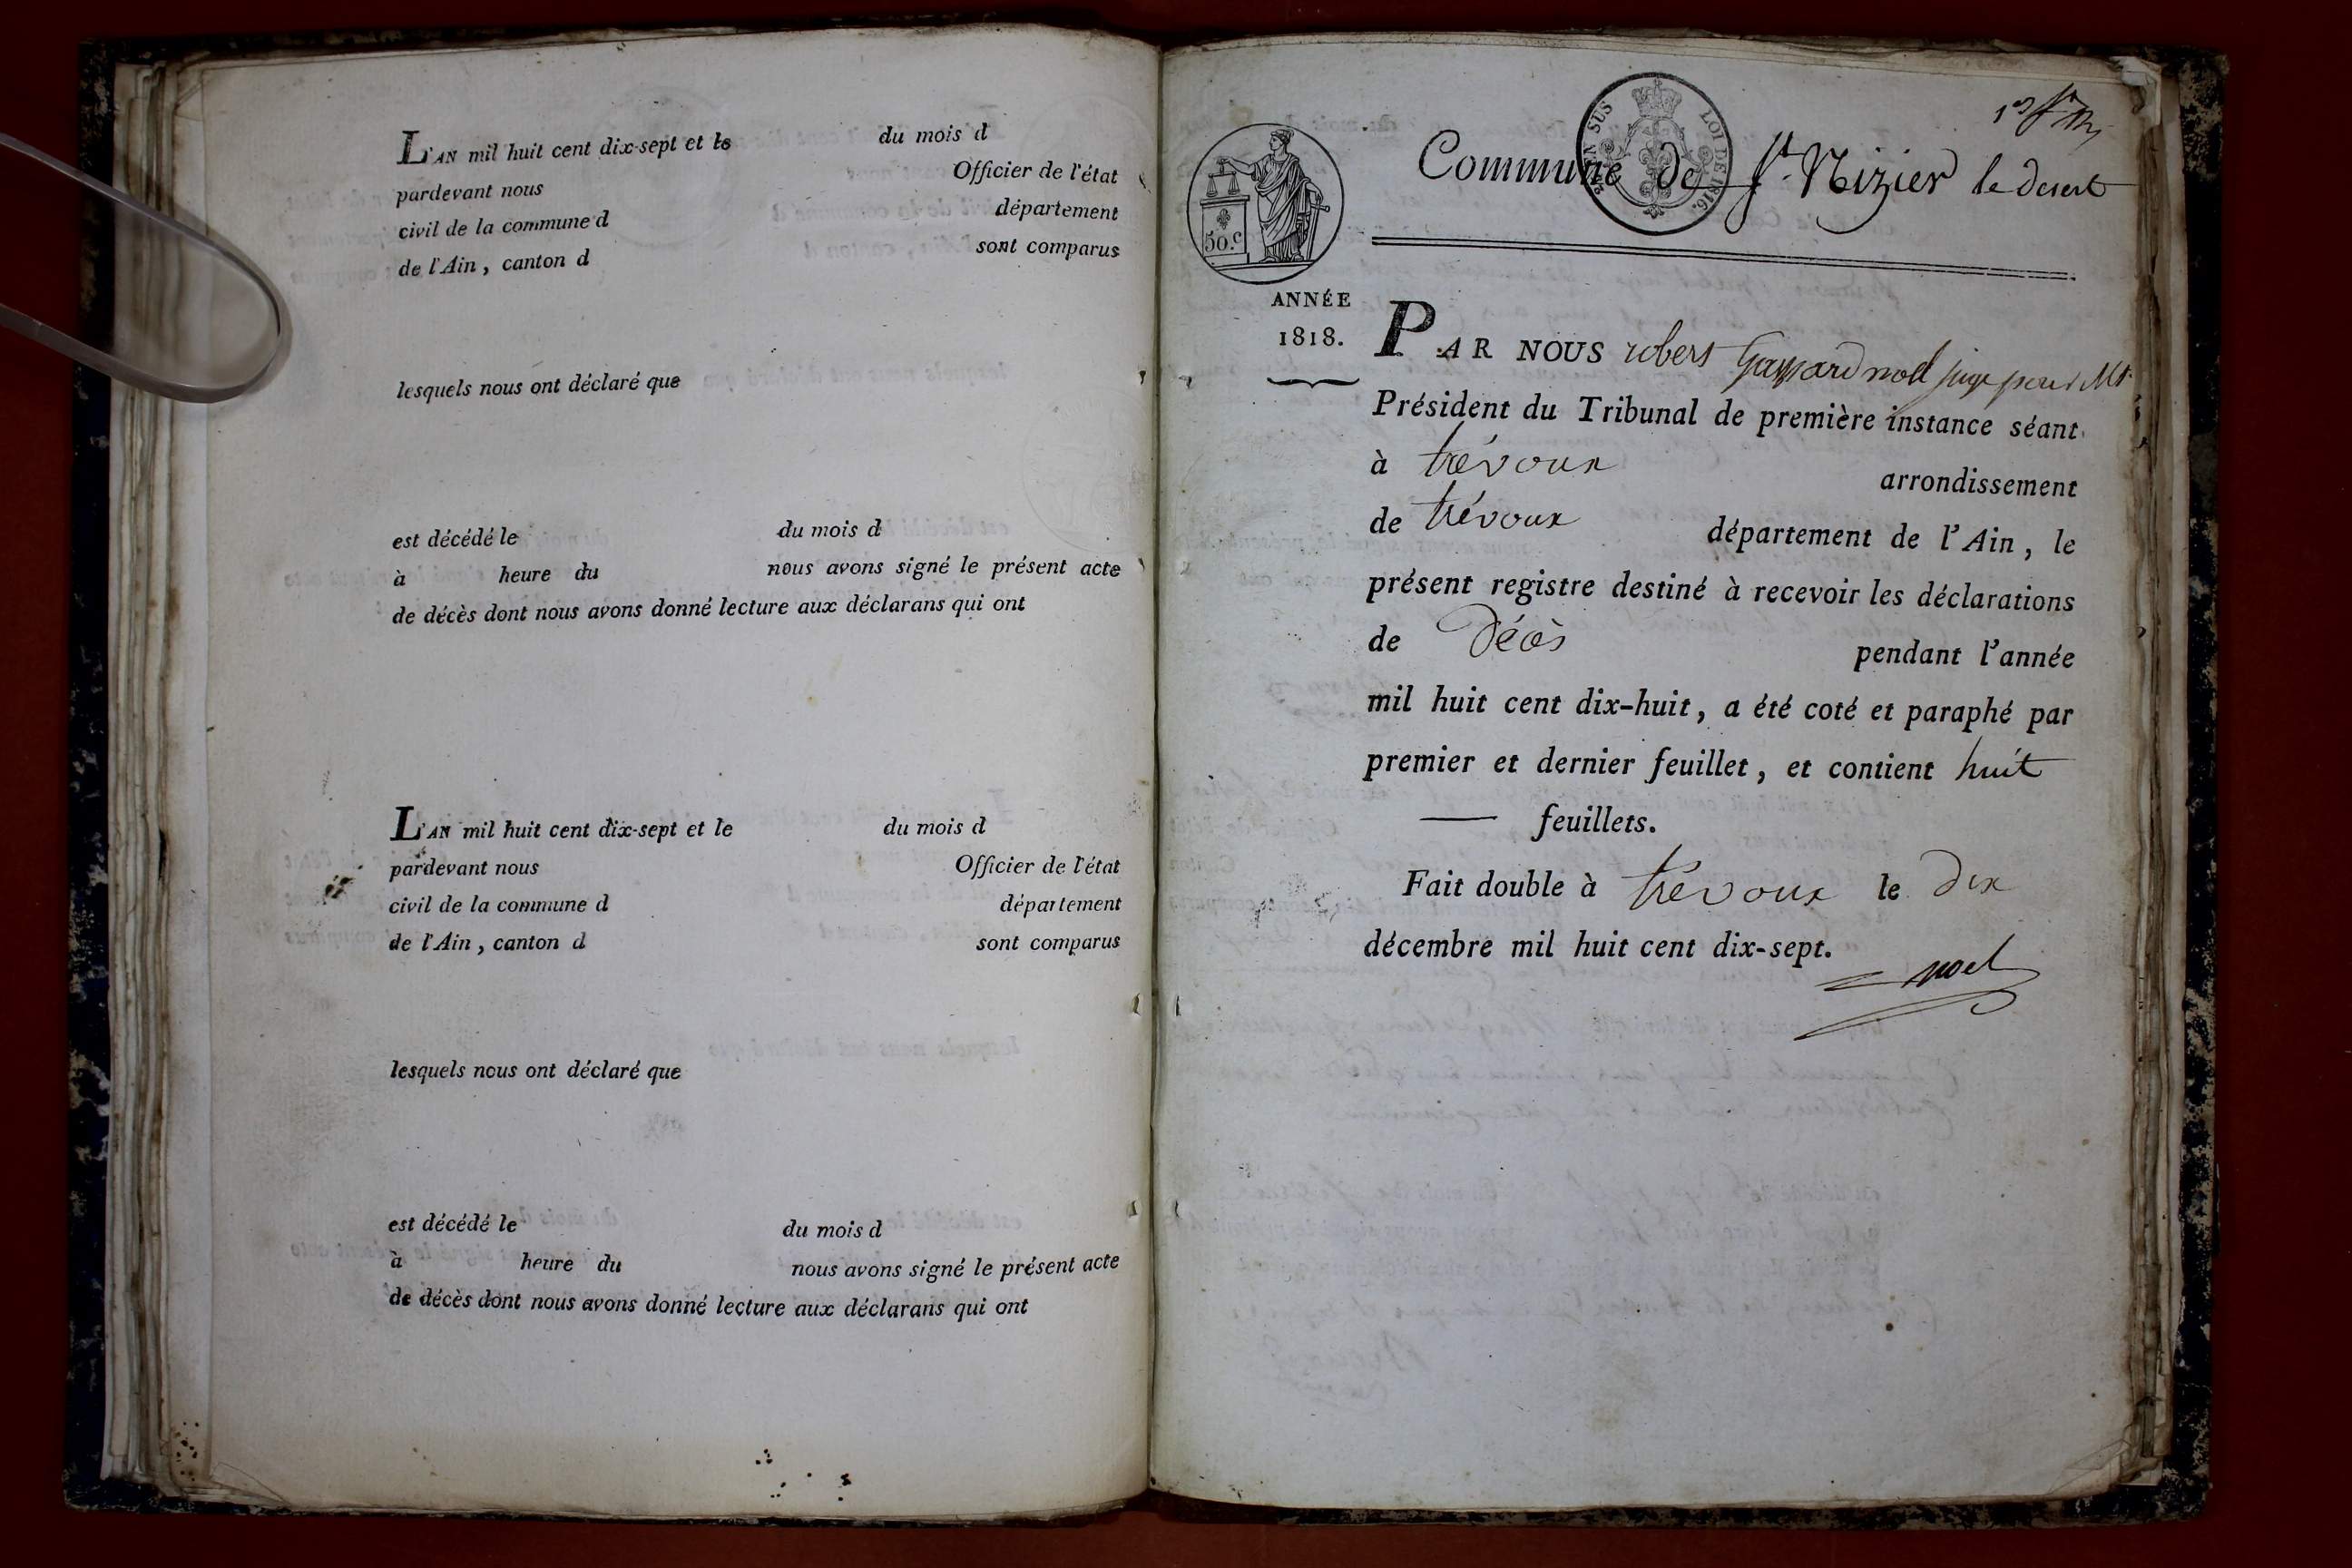 L'AN mil huit cent dix-sept et le du mois d
pardevant nous Officier de l'état
civil de la commune d département
de l'Ain, canton d sont comparus
lesquels nous ont déclaré que
est décédé le du mois d
à heure du nous avons signé le présent acte
de décès dont nous avons donné lecture aux déclarans qui ont
L'AN mil huit cent dix-sept et le du mois d
pardevant nous Officier de l'état
civil de la commune d département
de l'Ain, canton d sont comparus
lesquels nous ont déclaré que
est décédé le du mois d
à heure du nous avons signé le présent acte
de décès dont nous avons donné lecture aux déclarans qui ont
50.c
EN SUS LOI DE 1816.
Commune de St. Nizier le desert
ANNÉE
1818.
PAR NOUS robert Gaspard noel juge pour Mr.
Président du Tribunal de première instance séant
à trévoux arrondissement
de trévoux département de l'Ain, le
présent registre destiné à recevoir les déclarations
de Décès pendant l'année
mil huit cent dix-huit, a été coté et paraphé par
premier et dernier feuillet, et contient huit
— feuillets.
Fait double à trévoux le dix
décembre mil huit cent dix-sept.
noel